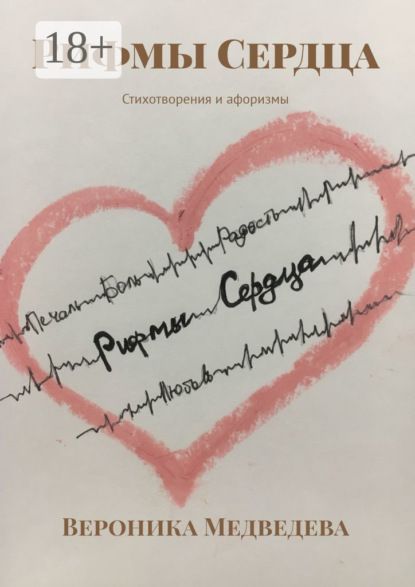 18+
Рифмы Сердца
Стихотворения и афоризмы
Печаль Боль Радость
Рифмы Сердца
Любовь
Вероника Медведева